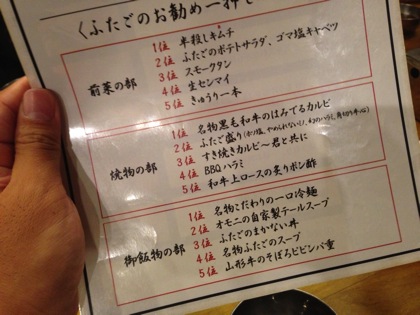 くふたごのお勧め一押し
前菜の部
1位 辛殺しキムチ
2位 ふたごのポテトサラダ、ゴマ塩キャベツ
3位 スモークタン
4位 生センマイ
5位 きゅうり一本
焼物の部
1位 名物黒毛和牛のはみでるカルビ
2位 ふたご盛り
3位 すき焼きカルビ〜君と共に
4位 BBQハラミ
5位 和牛上ロースの炙りポン酢
御飯物の部
1位 名物こだわりの一口冷麺
2位 オモニの自家製テールスープ
3位 ふたごのまかない丼
4位 名物ふたごのスープ
5位 山形牛のそぼろビビンバ重